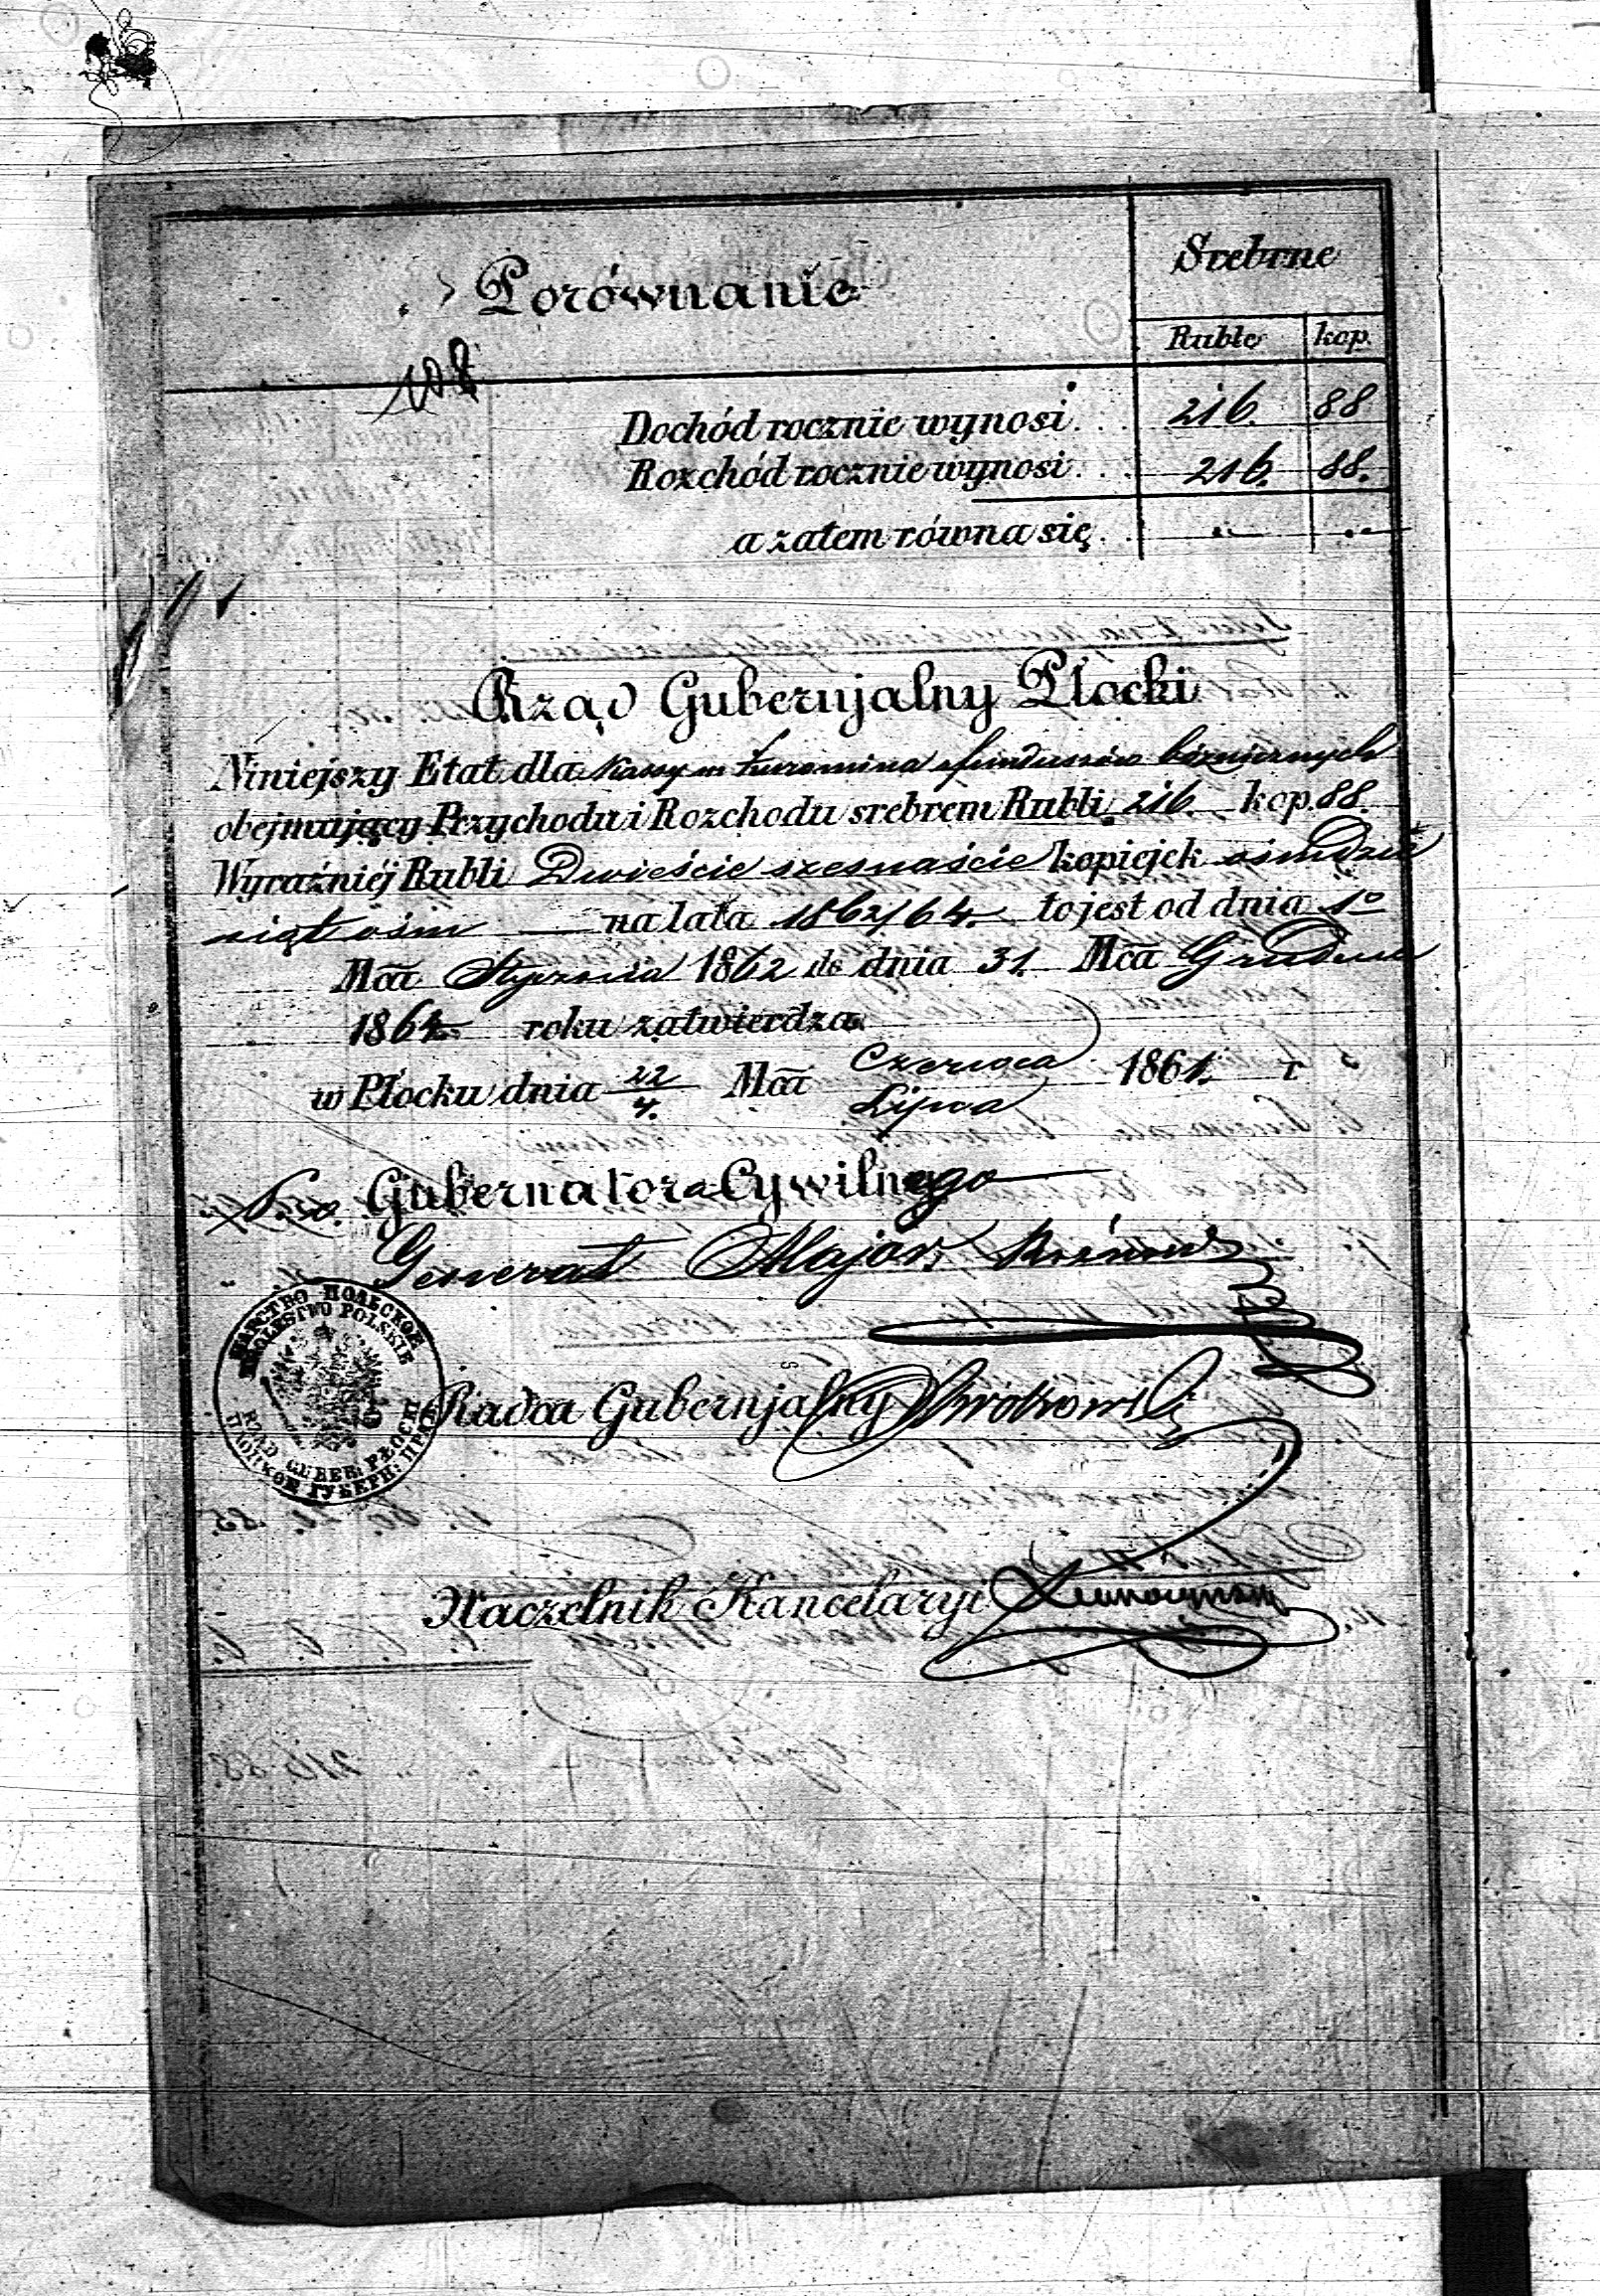 Porównanie
Srebrne
Ruble kop.
108
Dochód rocznie wynosi . . 216. 88
Rozchód rocznie wynosi . . 216. 88.
a zatem równa się . . „ — „ —
Rząd Gubernjalny Płocki
Niniejszy Etat dla Kassy m. Żuromina z funduszów bóżniczných
obejmujący Przychodu i Rozchodu srebrem Rubli 216. kop. 88.
Wyraźniéj Rubli Dwieście szesnaście kopiejek ośmdzie
siąt ośm — na lata 1862/64. to jest od dnia 1o
Mca Stycznia 1862 do dnia 31. Mca Grudnia
1864. roku zatwierdza.
w Płocku dnia 22/4. Mca Czerwca/Lipca 1861. r.
Gubernatora Cywilnego
Generał Major
ЦАРСТВО ПОЛЬСКОЕ
KRÓLESTWO POLSKIE
RZĄD GUBER: PŁOCKI
Radca Gubernjalny
Naczelnik Kancelaryi